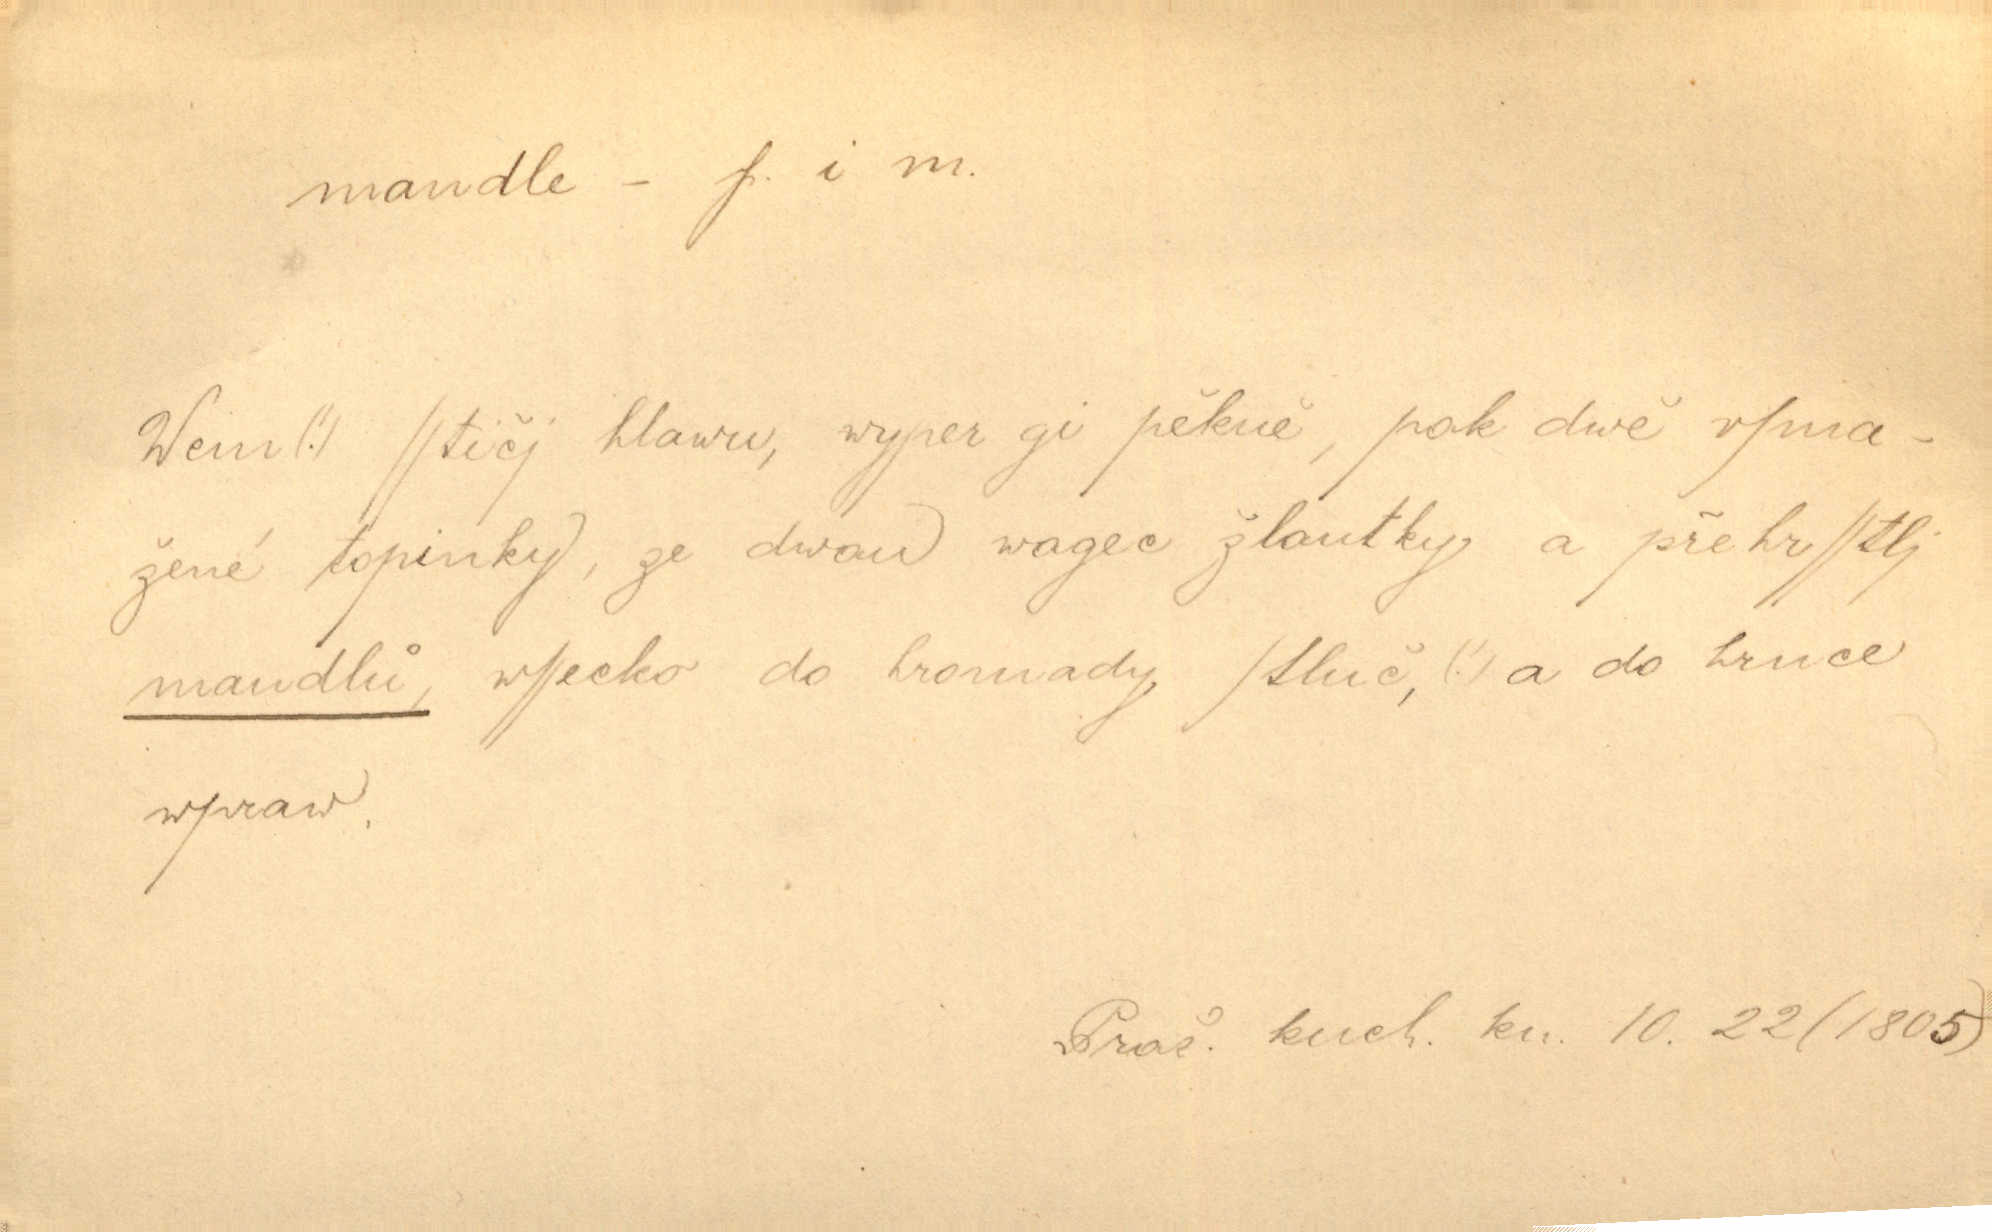 mandle - f. i m.
Wem(!) ſſtičj hlawu, wyper gi pěkně, pak dwě vſma-
žené topinky, ze dwau wagec žlautky a přehrſſtlj
mandlů, wſſecko do hromady ſtluč,(!) a do hrnce
wpraw.
Praž. kuch. kn. 10. 22 (1805)